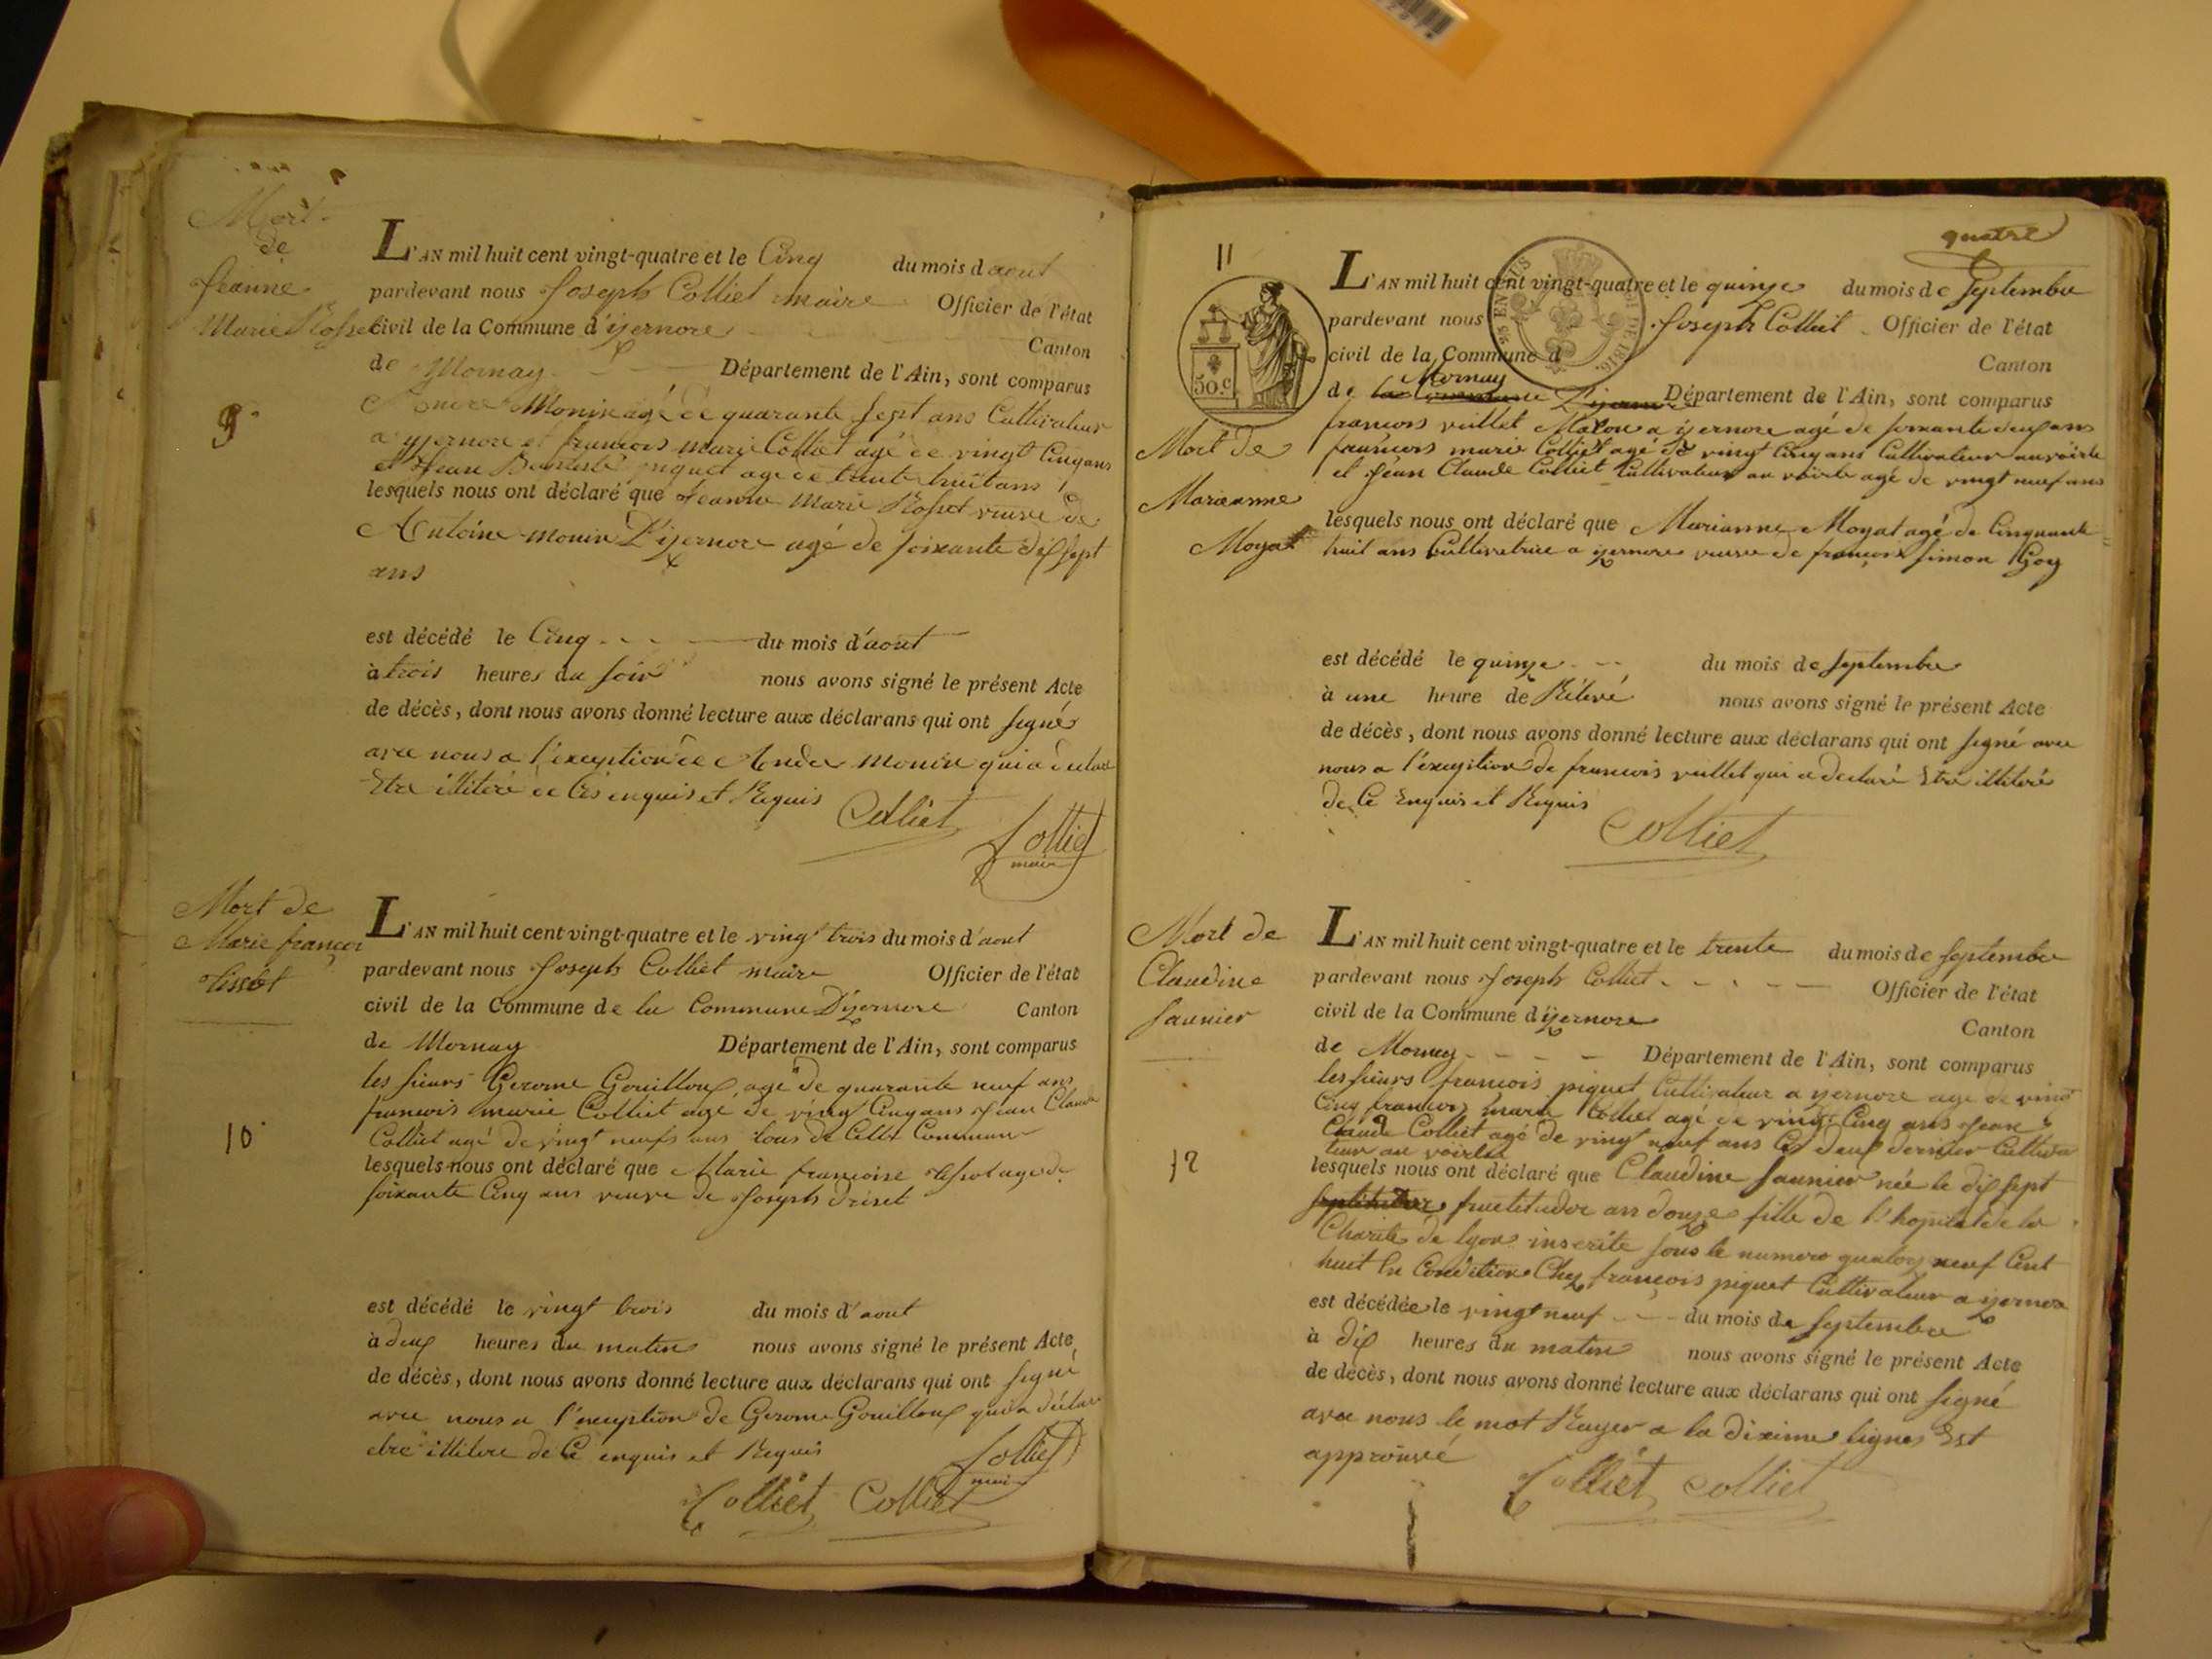 Mort
de
Jeanne
Marie Rosset
9
L'AN mil huit cent vingt-quatre et le Cinq du mois d'aout
pardevant nous Joseph Colliet maire Officier de l'état
civil de la Commune d'izernore
Canton
de Mornay Département de l'Ain, sont comparus
Monin agé de quarante sept ans Cultivateur
a izernore et francois marie Colliet agé de vingt Cinq ans
et Jean Baptiste piquet age de trente huit ans
lesquels nous ont déclaré que Jeanne Marie Rosset veuve de
Antoine monin D'izernore agé de soixante dix sept
ans
est décédé le Cinq du mois d'aout
à trois heures du soir nous avons signé le présent Acte
de décès, dont nous avons donné lecture aux déclarans qui ont signé
avec nous a l'exception de Andre monin qui a declaré
Etre illitéré de Ces enquis et Requis
Colliet
Colliet
maire
Mort de
Marie françoi
tissot
10
L'AN mil huit cent vingt-quatre et le vingt trois du mois d'aout
pardevant nous Joseph Colliet maire Officier de l'état
civil de la Commune de la Commune D'izernore Canton
de Mornay Département de l'Ain, sont comparus
les sieurs Gerome Gouilloux agé de quarante neuf ans
francois marie Colliet agé de vingt Cinq ans Jean Claude
Colliet agé de vingt neufs ans tous de Cette Commune
lesquels nous ont déclaré que Marie francoise tissot age de
soixante Cinq ans veuve de Joseph
est décédé le vingt trois du mois d'aout
à deux heures du matin nous avons signé le présent Acte
de décès, dont nous avons donné lecture aux déclarans qui ont signé
avec nous a l'exception de Gerome Gouilloux qui a déclar
etre illitere de Ce enquis et Requis
Colliet
maire
Colliet Colliet
quatre
11
50.c
Mort de
Marieanne
Moyat
L'AN mil huit cent vingt-quatre et le quinze du mois de Septembre
pardevant nous Joseph Colliet Officier de l'état
civil de la Commune d
Canton
Mornay
de la Commune D'izernore Département de l'Ain, sont comparus
francois vuillet Maçon a izernore agé de soixante deux ans
francois marie Colliet agé de vingt Cinq ans Cultivateur au voirle
et Jean Claude Colliet Cultivateur au voirle agé de vingt neuf ans
lesquels nous ont déclaré que Marianne Moyat agé de Cinquante
huit ans Cultivatrice a izernore veuve de françois simon Goy
est décédé le quinze du mois de septembre
à une heure de Rélevé nous avons signé le présent Acte
de décès, dont nous avons donné lecture aux déclarans qui ont signé avec
nous a l'exception de francois vuillet qui a declaré Etre illitéré
de Ce Enquis et Requis
Colliet
Mort de
Claudine
saunier
12
L'AN mil huit cent vingt-quatre et le trente du mois de septembre
pardevant nous Joseph Colliet Officier de l'état
civil de la Commune d'izernore
Canton
de Mornay Département de l'Ain, sont comparus
les sieurs francois piquet Cultivateur a izernore age de vingt
Cinq francois marie Colliet agé de vingt Cinq ans Jean
Claude Colliet agé de vingt neuf ans Ces deux dernier Cultiva
teur au voirle
lesquels nous ont déclaré que Claudine saunier née le dix sept
septembre fructitudor an douze fille de l'hopital de la
Charité de lyon inscrite sous le numero quatorz neuf Cent
huit En Condition Chez françois piquet Cultivateur a izernore
est décédée le vingt neuf du mois de septembre
à dix heures du matin nous avons signé le présent Acte
de décès, dont nous avons donné lecture aux déclarans qui ont signé
avec nous le mot Rayer a la dixime lignes Est
approuvé
Colliet Colliet